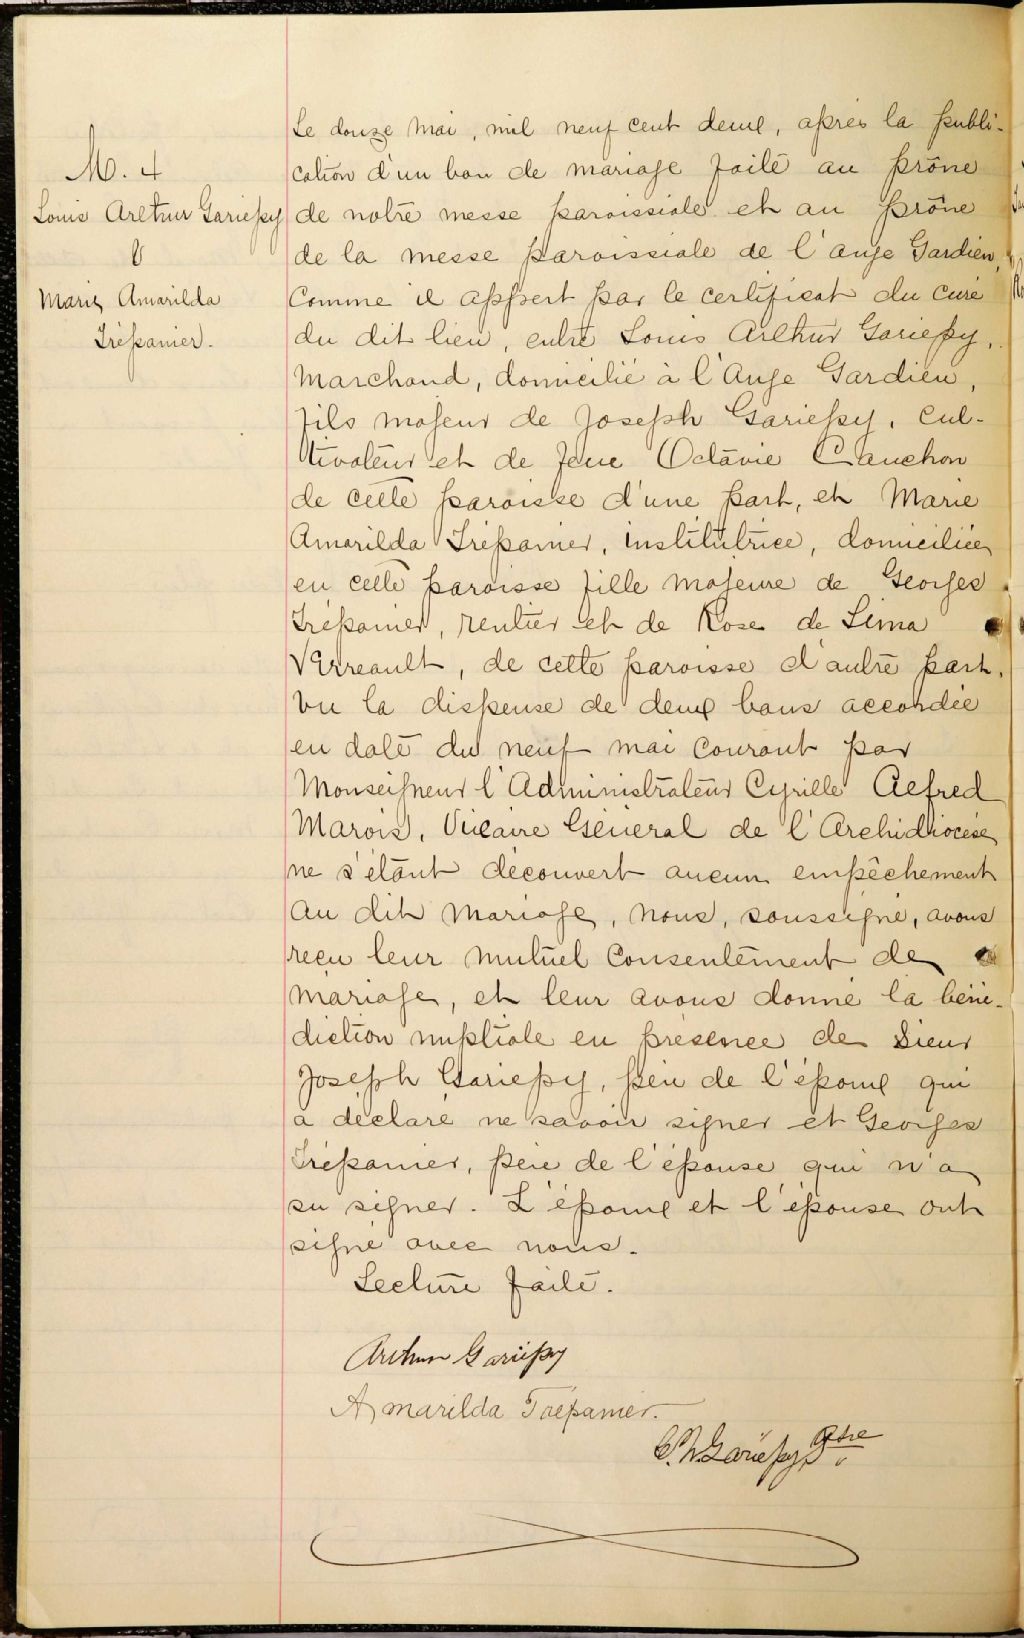 M. 4
Louis Arthur Gariépy
&
Marie Amarilda
Trépanier.
Le douze Mai, mil neuf cent deux, après la publi-
cation d'un ban de mariage faite au prône
de notre messe paroissiale et au prône
de la messe paroissiale de l'ange Gardien,
Comme il appert par le certificat du curé
du dit lieu, entre Louis Arthur Gariépy,
Marchand, domicilié à l'Ange Gardien,
fils majeur de Joseph Gariépy, cul-
tivateur et de feue Octavie Cauchon
de cette paroisse d'une part, et Marie
Amarilda Trépanier, institutrice, domiciliée
en cette paroisse fille majeure de Georges
Trépanier, rentier et de Rose de Lima
Verreault, de cette paroisse d'autre part.
Vu la dispense de deux bans accordée
en date du neuf mai courant par
Monseigneur l'Administrateur Cyrille Alfred
Marois, Vicaire Général de l'Archidiocèse
ne s'étant découvert aucun empêchement
au dit mariage, nous, soussigné, avons
reçu leur mutuel consentement de
mariage, et leur avons donné la béné-
diction nuptiale en présence de Sieur
Joseph Gariépy, père de l'époux qui
a déclaré ne savoir signer et Georges
Trépanier, père de l'épouse qui n'a
su signer. L'époux et l'épouse ont
signé avec nous.
Lecture faite.
Arthur Gariépy
Amarilda Trépanier.
Gariépy Ptre